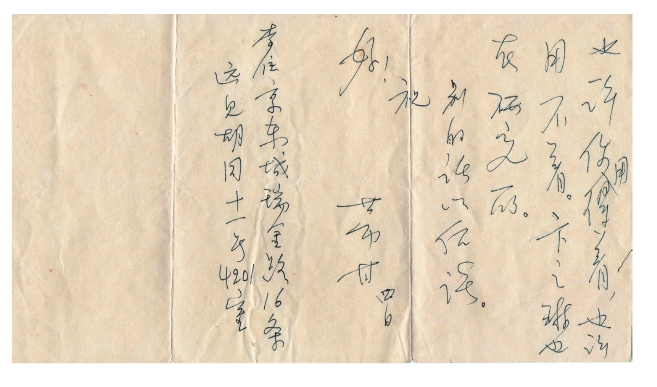 也许你用得着，也许
用不着。卞之琳也
在研究所。
别的话以后谈。
祝
好！
廿四日
李住京东城瑞金路16条
远见胡同十一号4201室